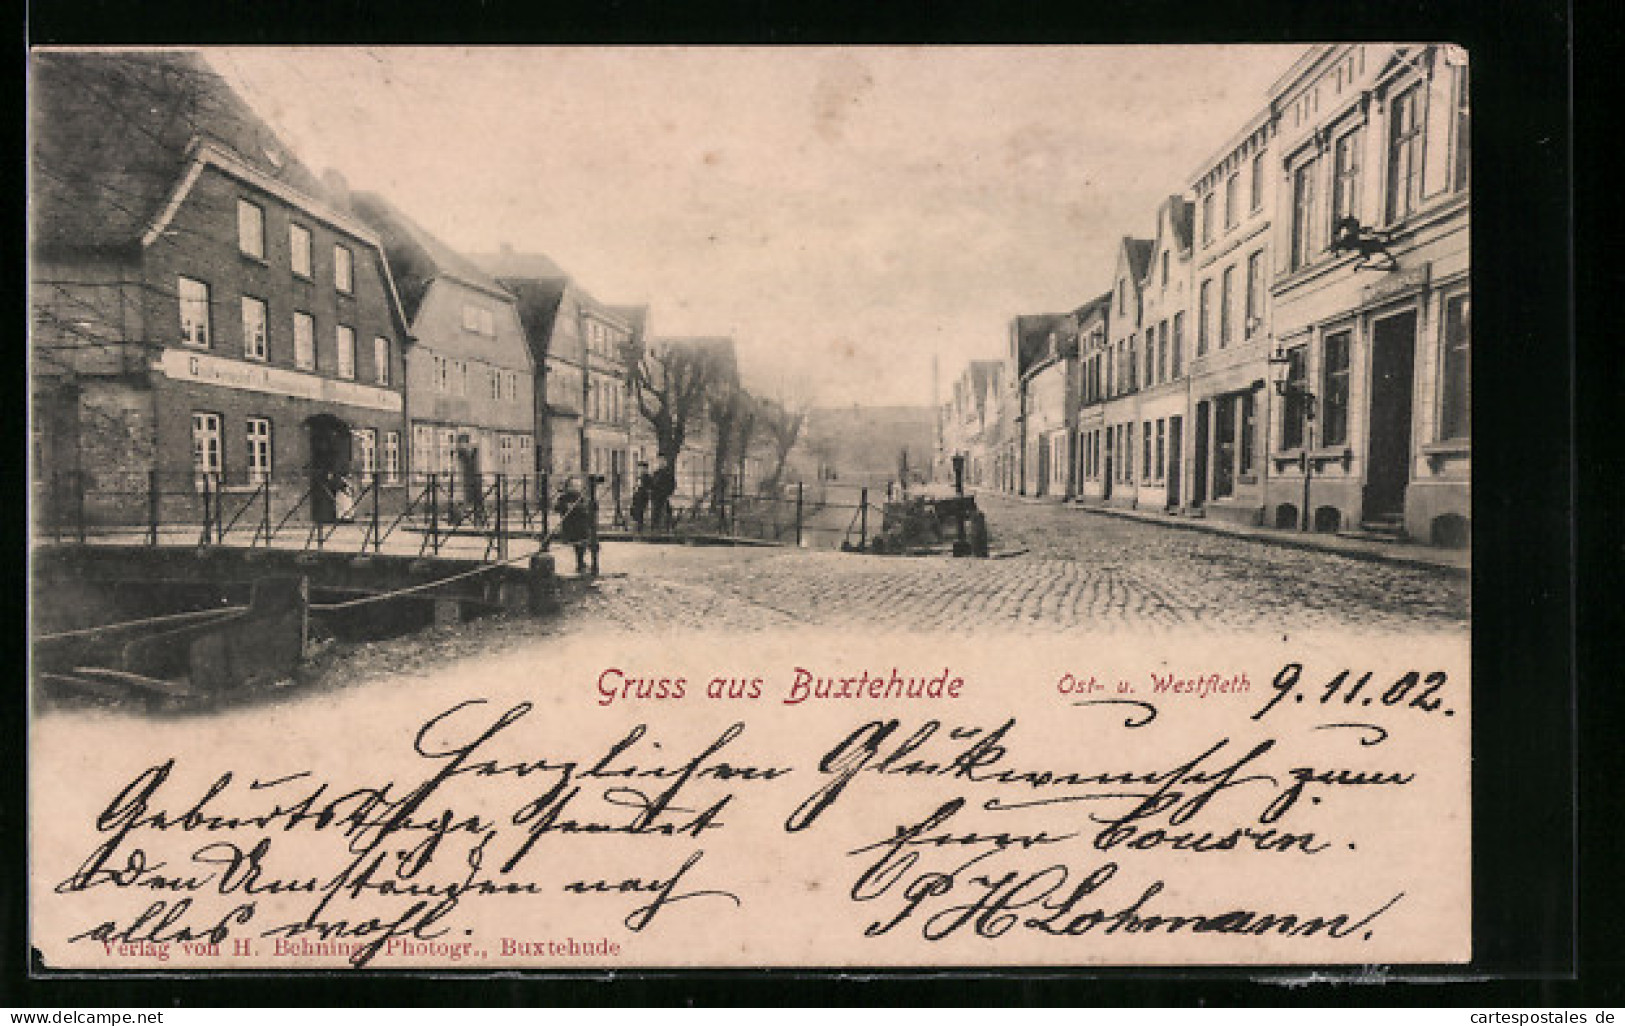 Gruss aus Buxtehude
Ost- u. Westfleth
9.11.02.
Herzlichen Glükwunsch zum
Geburtstage, sendet Euer Cousin.
den Umständen nach
alles wohl.
P H Lohmann.
Verlag von H. Behning, Photogr., Buxtehude
www.delcampe.net
cartespostales de